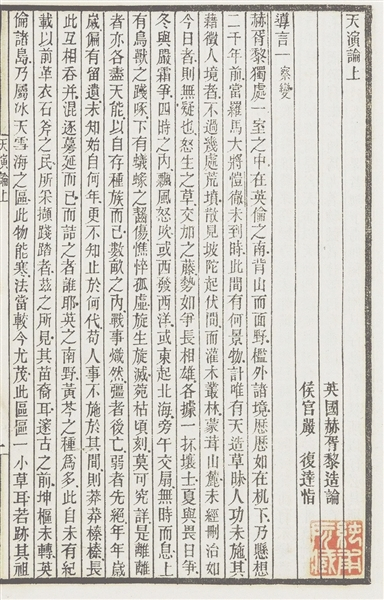 天演論上
英國赫胥黎造論
侯官嚴 復達恉
導言一 察變
赫胥黎獨處一室之中在英倫之南背山而面野檻外諸境歷歷如在机下乃懸想
二千年前當羅馬大將愷徹未到時此間有何景物計唯有天造草昧人功未施其
藉徵人境者不過幾處荒墳散見坡陀起伏間而灌木叢林蒙茸山麓未經刪治如
今日者則無疑也怒生之草交加之藤勢如爭長相雄各據一抔壤土夏與畏日爭
冬與嚴霜爭四時之内飄風怒吹或西發西洋或東起北海旁午交扇無時而息上
有鳥獸之踐啄下有蟻蝝之齧傷憔悴孤虛旋生旋滅菀枯頃刻莫可究詳是離離
者亦各盡天能以自存種族而已數畝之内戰事熾然彊者後亡弱者先絕年年歲
歲偏有留遺未知始自何年更不知止於何代苟人事不施於其間則莽莽榛榛長
此互相吞并混逐蔓延而已而詰之者誰耶英之南野黃芩之種爲多此自未有紀
載以前革衣石斧之民所采擷踐踏者兹之所見其苗裔耳邃古之前坤樞未轉英
倫諸島乃屬冰天雪海之區此物能寒法當較今尤茂此區區一小草耳若跡其祖
天演論上